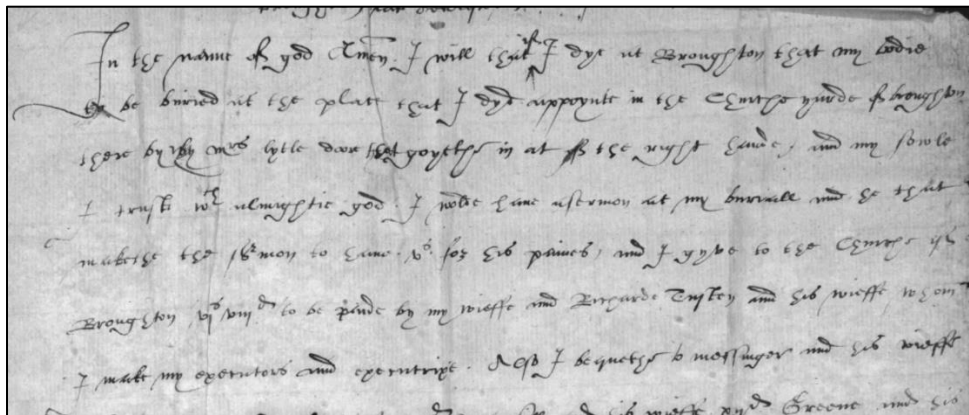 In the name of god Amen. I will that if I dye at Broughton that my bodie
be buried at the place that I dyd appoynte in the Churche yarde of broughton
there by my mrs lytle dore that goyethe in at the right hande, and my sowle
I truste wth almightie god. I wolde have a sermon at my buriall and he that
makethe the sermon to have vs for his paines, and I gyve to the Churche of
Broughton vjs viijd to be paide by my wieffe and Richarde and his wieffe whom
I make my executors and executrixe. Also I bequethe to messinger and his wieffe
Greene and his